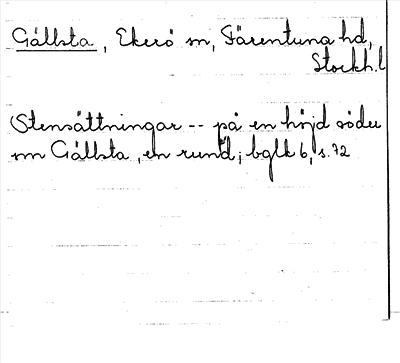 Gällsta, Ekerö sn, Färentuna hd,
Stockh.l
Stensättningar -- på en höjd söder
om Gällsta, en rund; bglk 6, s. 72